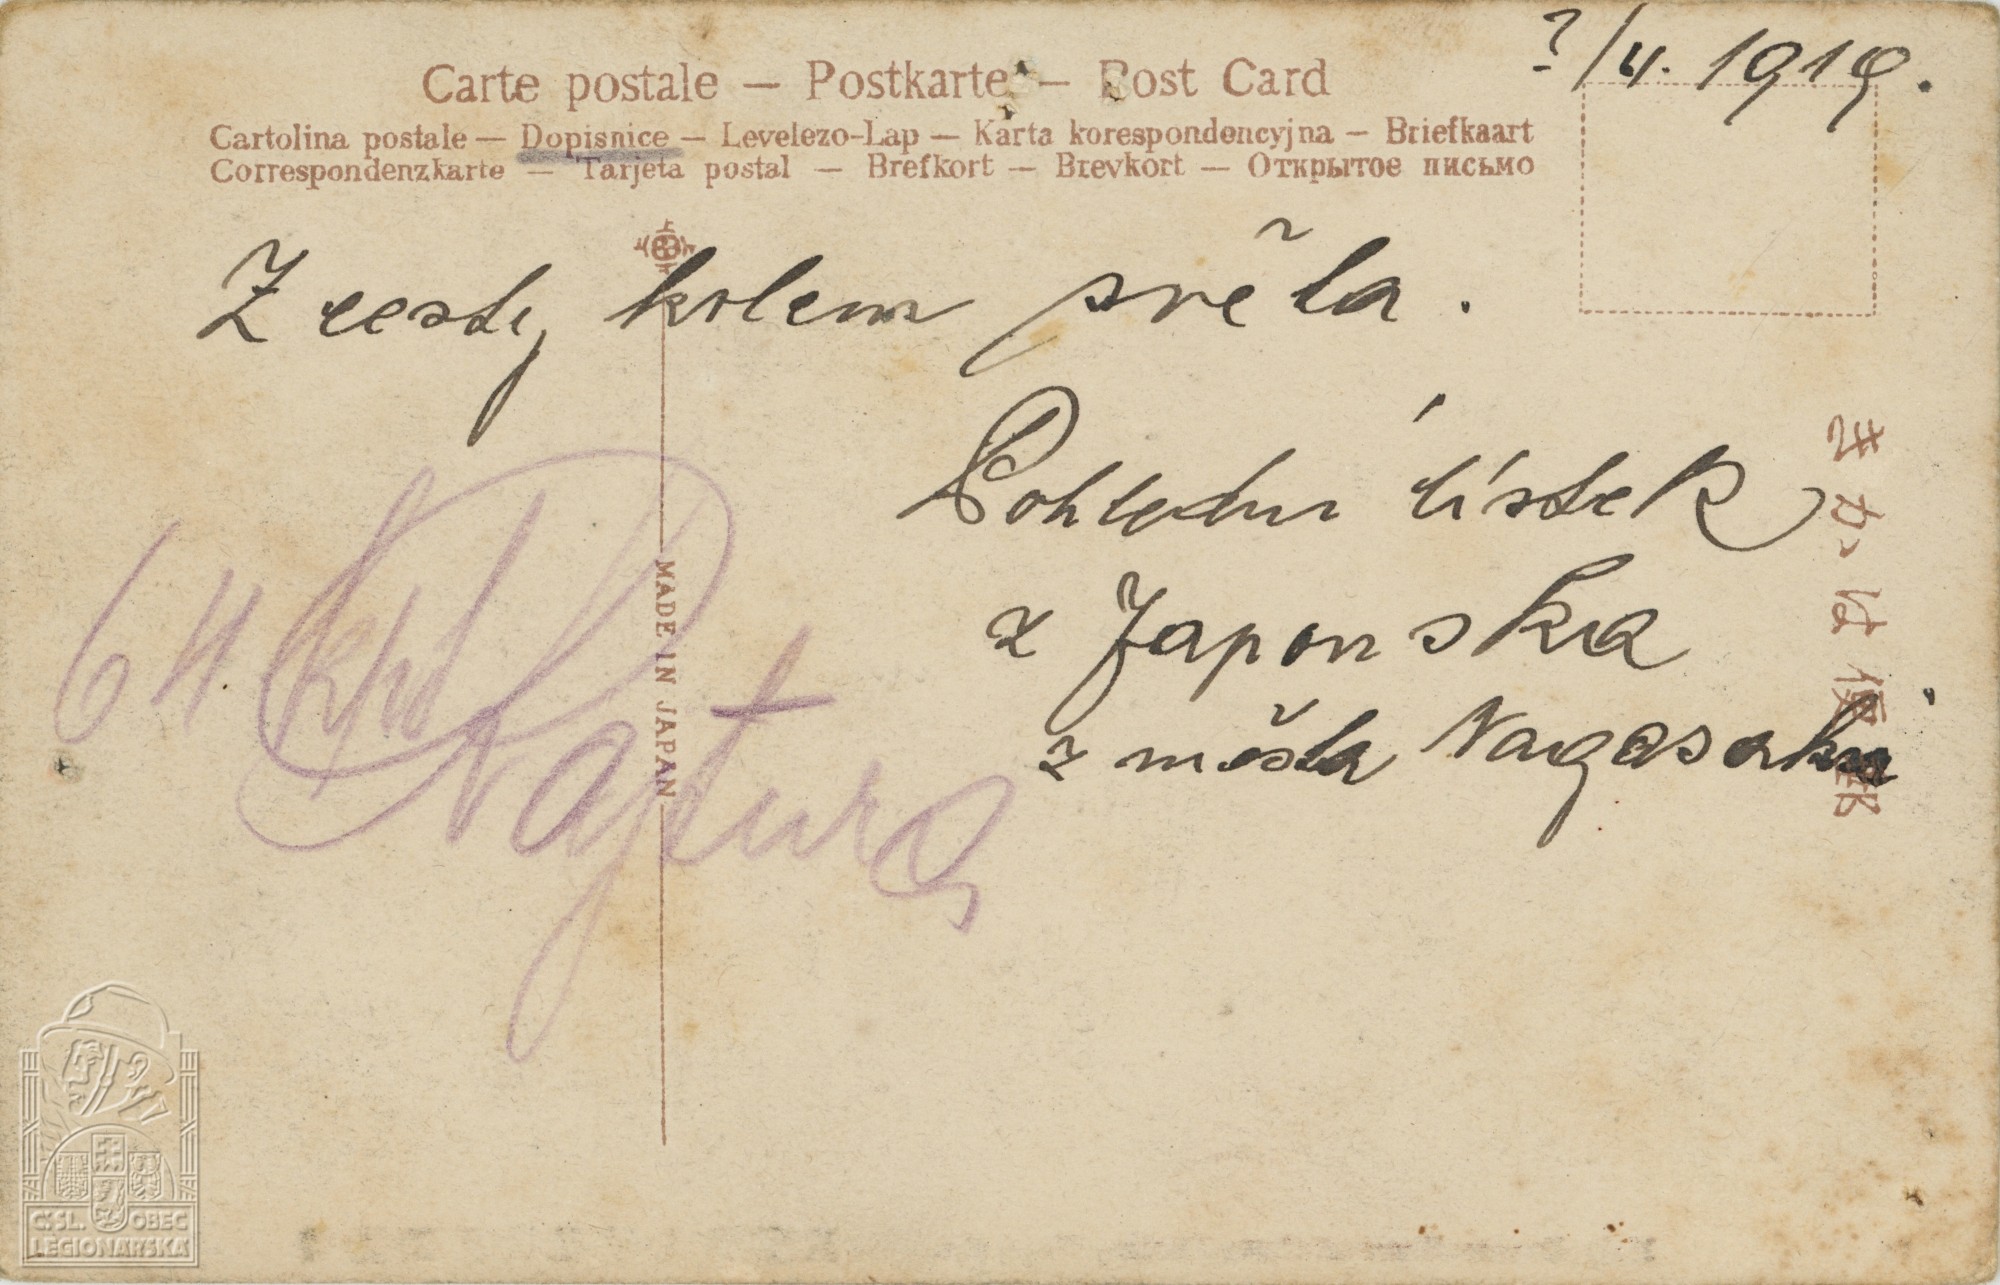 ?/4. 1919.
Carte postale — Postkarte — Post Card
Cartolina postale — Dopisnice — Levelezo-Lap — Karta korespondencyjna — Briefkaart
Correspondenzkarte — Tarjeta postal — Brefkort — Brevkort — Открытое письмо
Z cesty kolem světa.
Pohledni lístek
z Japonska
z města Nagasaki
64
MADE IN JAPAN
きかは便郵
ČSL. OBEC
LEGIONÁŘSKÁ